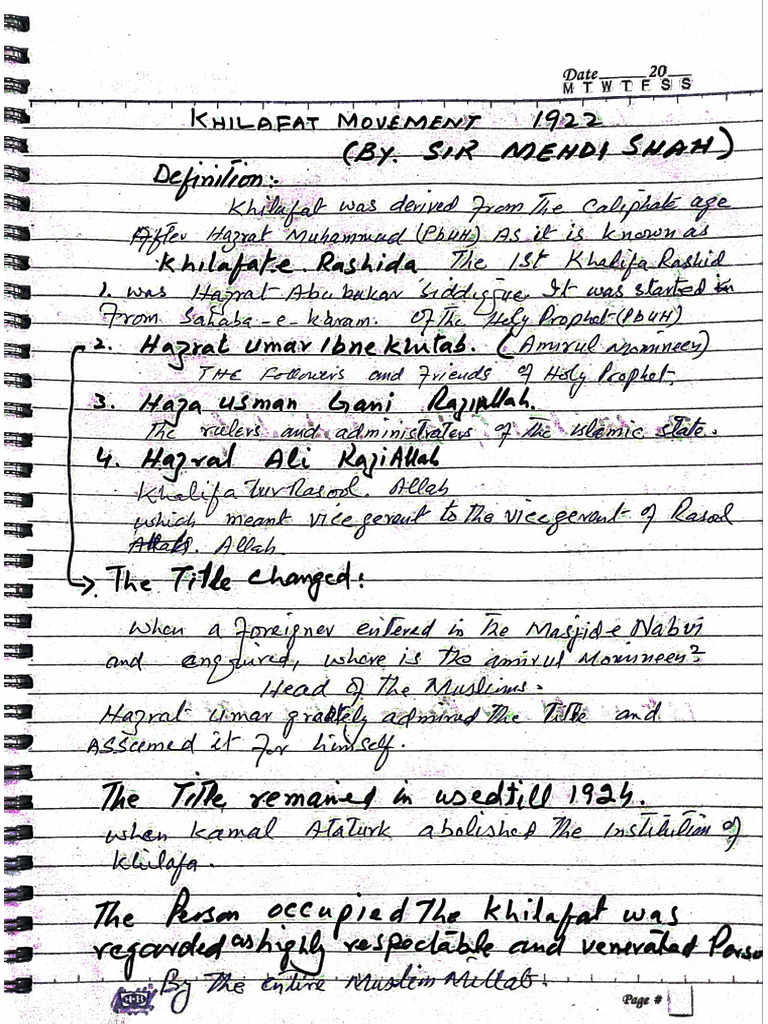 Date 20
M T W T F S S
KHILAFAT MOVEMENT 1922
(BY. SIR MEHDI SHAH)
Definition:-
Khilafat was derived from The Caliphate age
After Hazrat Muhammad (PbUH) As it is known as
Khilafate Rashida The 1st Khalifa Rashid
1. was Hazrat Abu bakar Siddique. It was started in
From Sahaba-e-Karam. Of The Holy Prophet (PbUH)
2. Hazrat Umar Ibne Khutab. (Amirul Momineen)
THE Followers and Friends of Holy Prophet.
3. Haza Usman Gani RaziAllah.
The rulers and administraters of The Islamic state.
4. Hazrat Ali RaziAllah
Khalifa tur Rasool. Allah
which meant vicegerent to the vicegerent of Rasool
Allah.
The Title changed:
when a foreigner entered in The Masjide Nabvi
and enquired, where is The amirul Momineen?
Head of The Muslims.
Hazrat Umar admired The Title and
Asscemed it for himself.
The Title remained in usedtill 1924.
when Kamal Ataturk abolished The institution of
Khilafa.
The Person occupied The Khilafat was
regarded as highly respectable and venerated Perso
By The entire Muslim Millat.
Page #